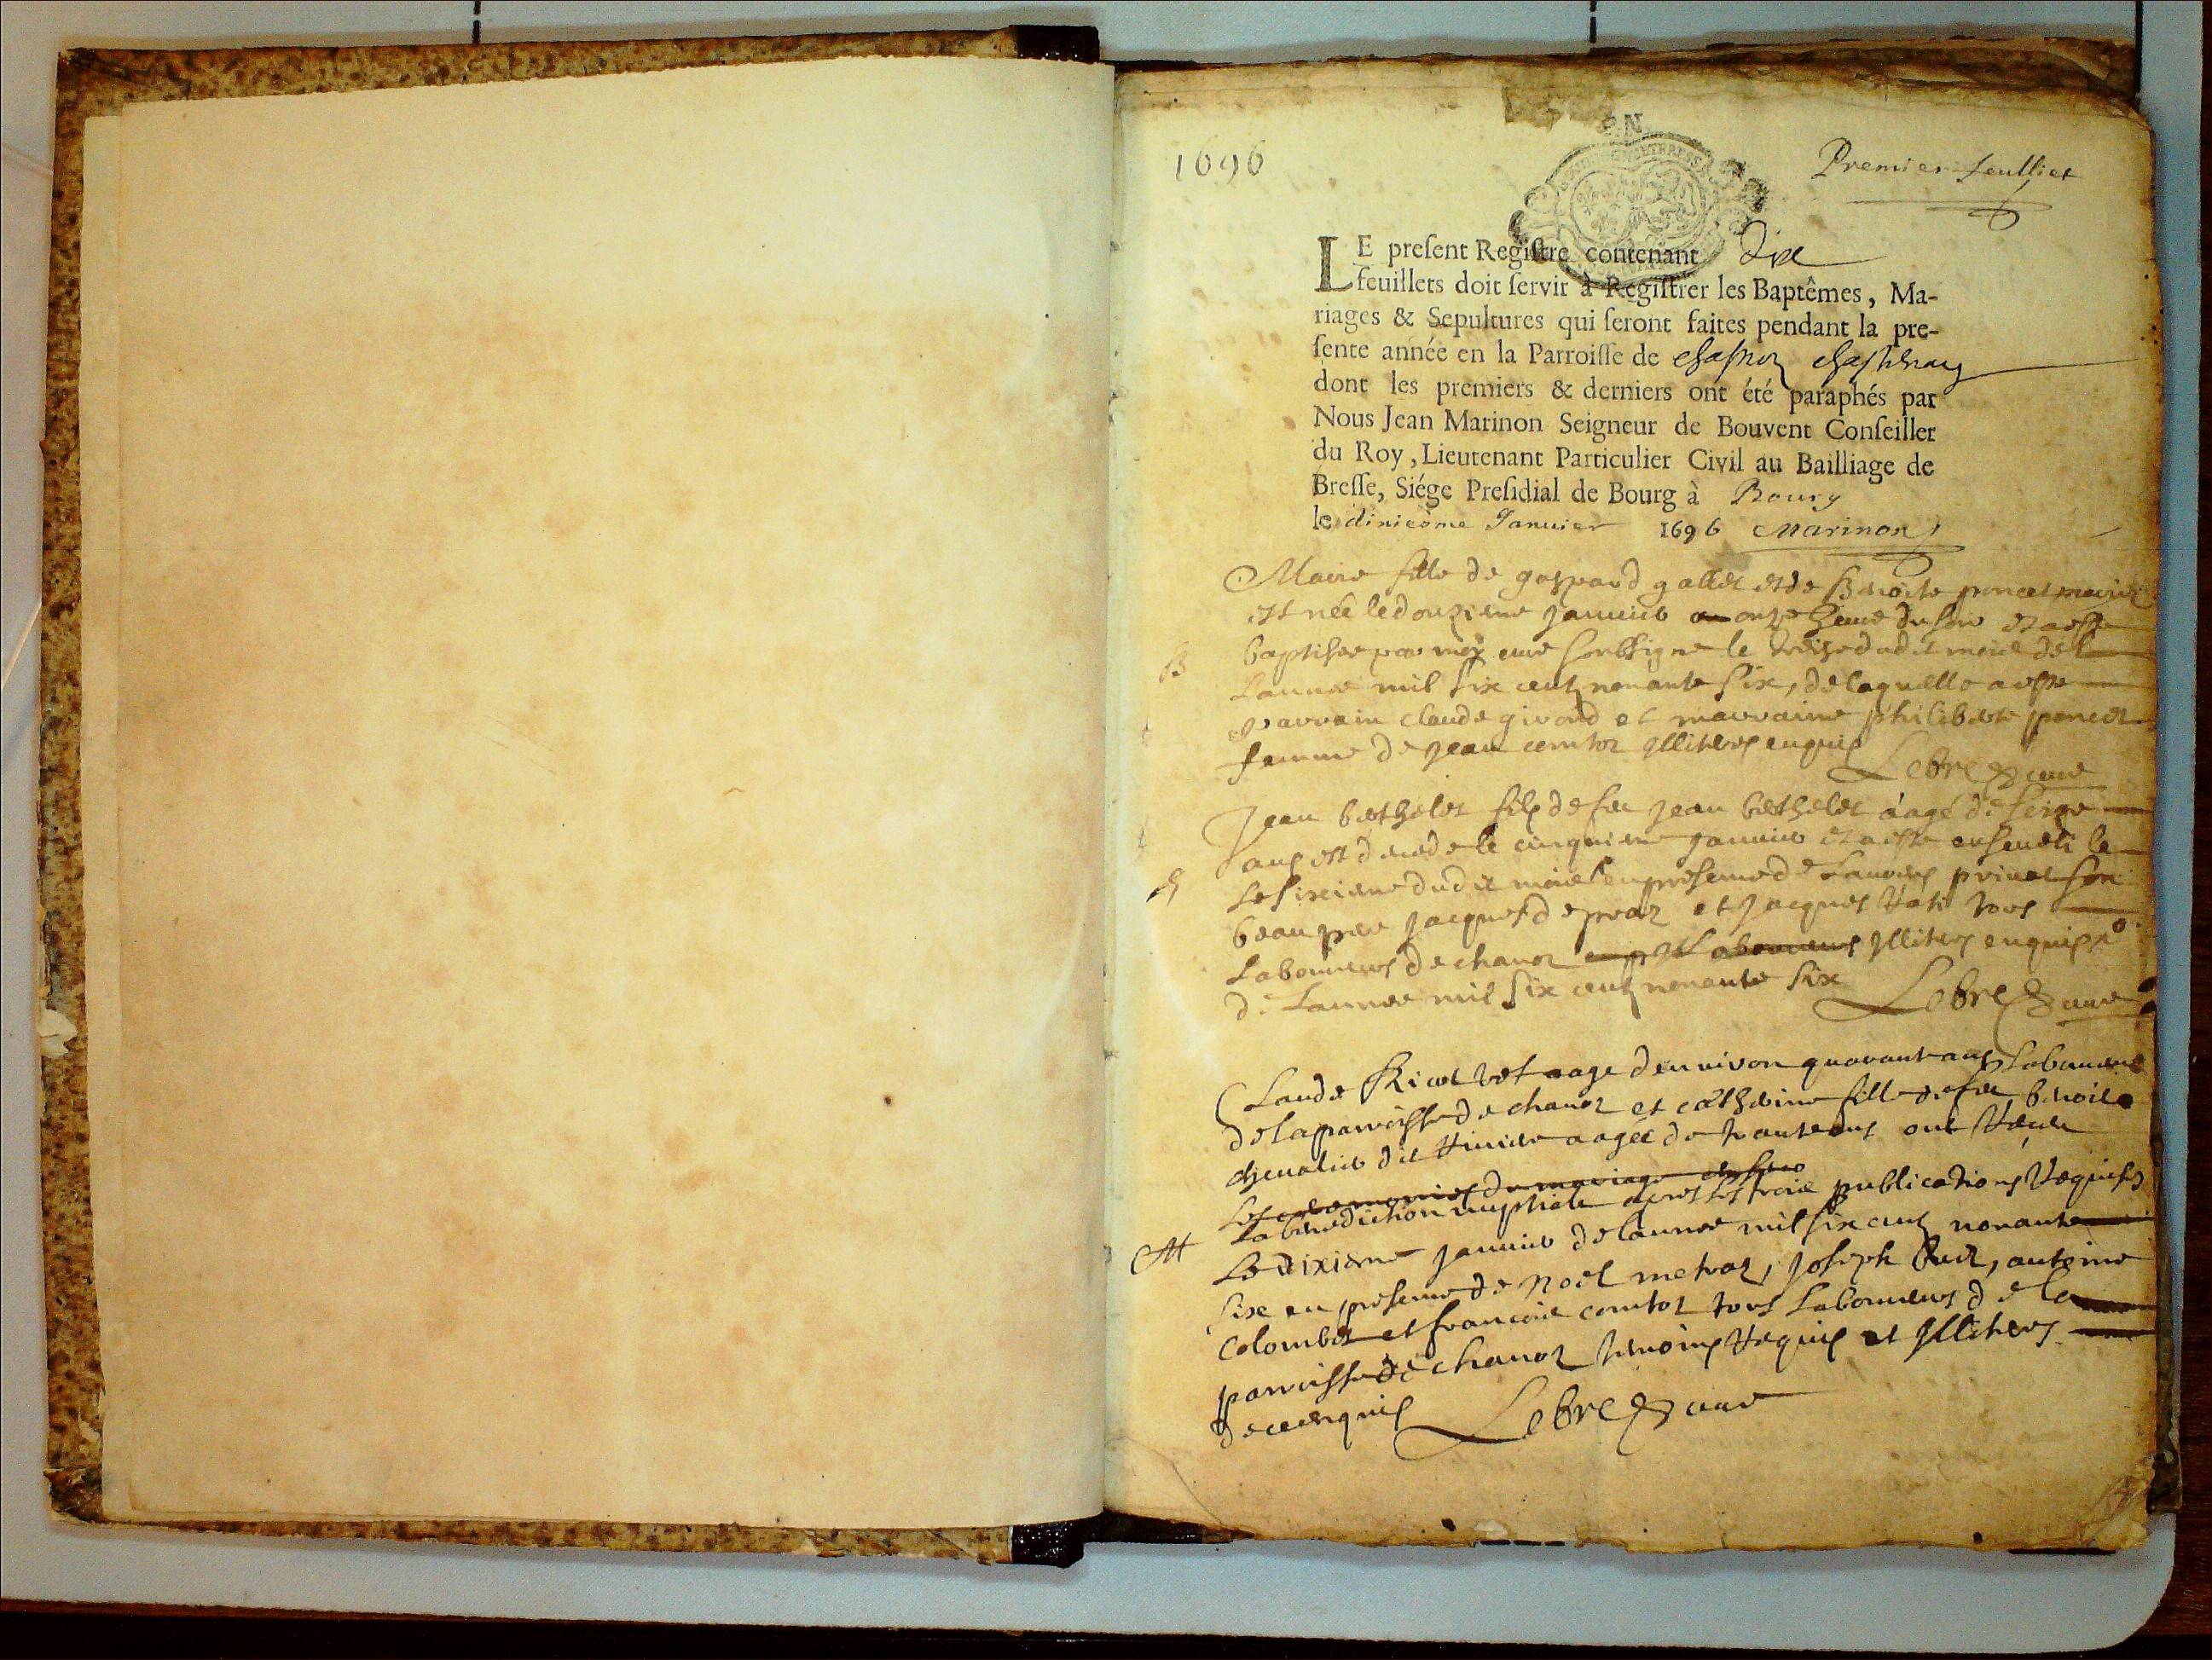 1696
Premier feulliet
LE preſent Regiſtre contenant dix
feuillets doit ſervir à Regiſtrer les Baptêmes, Ma-
riages & Sepultures qui ſeront faites pendant la pre-
ſente année en la Parroiſſe de
dont les premiers & derniers ont été paraphés par
Nous Jean Marinon Seigneur de Bouvent Conſeiller
du Roy, Lieutenant Particulier Civil au Bailliage de
Breſſe, Siége Preſidial de Bourg à Bourg
le dixieome Januier 1696 Marinon
Marie fille de gaspard gallet et de Benoite poncet mariés
est née le douzieme januier onze heure du soir et a esté
B
baptisee par moy curé soubsigne le treize dudit mois de
Lannee mil six cent nonante six, de laquelle a esté
parrain claude girard et marraine philiberte poncet
femme de jean comtoz jllitere enquis
Lebre curé
Jean berthelet fils de feu jean berthelet aagé de seize
ans est decede le cinquieme januier et a esté enseueli le
S
Le sixieme dudit mois en presence de Laurens prinet son
beau pere jacques de praz et jacques tous
Laboureurs de chanoz jlliteres enquis
de Lannee mil six cent nonante six
Lebre curé
Claude aage denuiron quarant ans Laboureur
de la parroisse de chanoz et catherine fille de feu benoit
cheualier dit aagée de trante ans ont receu
Les ceremonies du mariage
La benediction nuptiale apres les trois publications requises
M
Le dixieme januier de lannee mil six cent nonante
six en presence de noel metraz, joseph buet, antoine
colombet et francois comtoz tous Laboureurs de la
parroisse de chanoz temoins requis et jlliteres
de ce enquis
Lebre curé